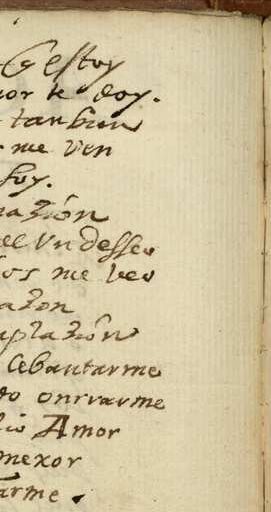 estoy
or te doy.
tanbien
me ven
soy.
azión
el Un desseo
os me veo
azon
plazion
lebantarme
do onrrarme
io Amor
mexor
arme.